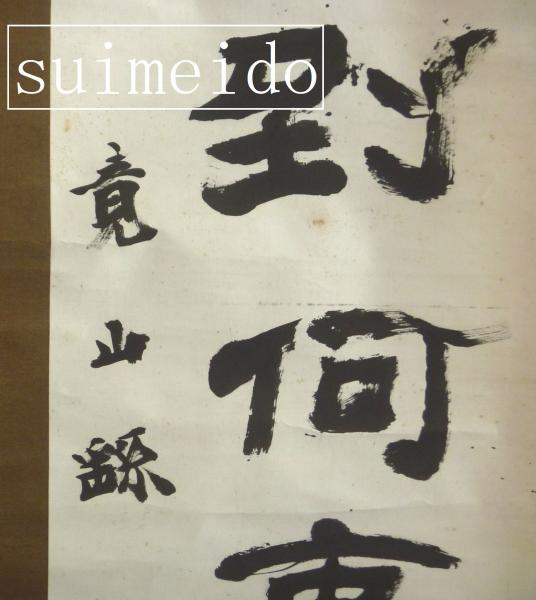 suimeido
到何
竟山繇